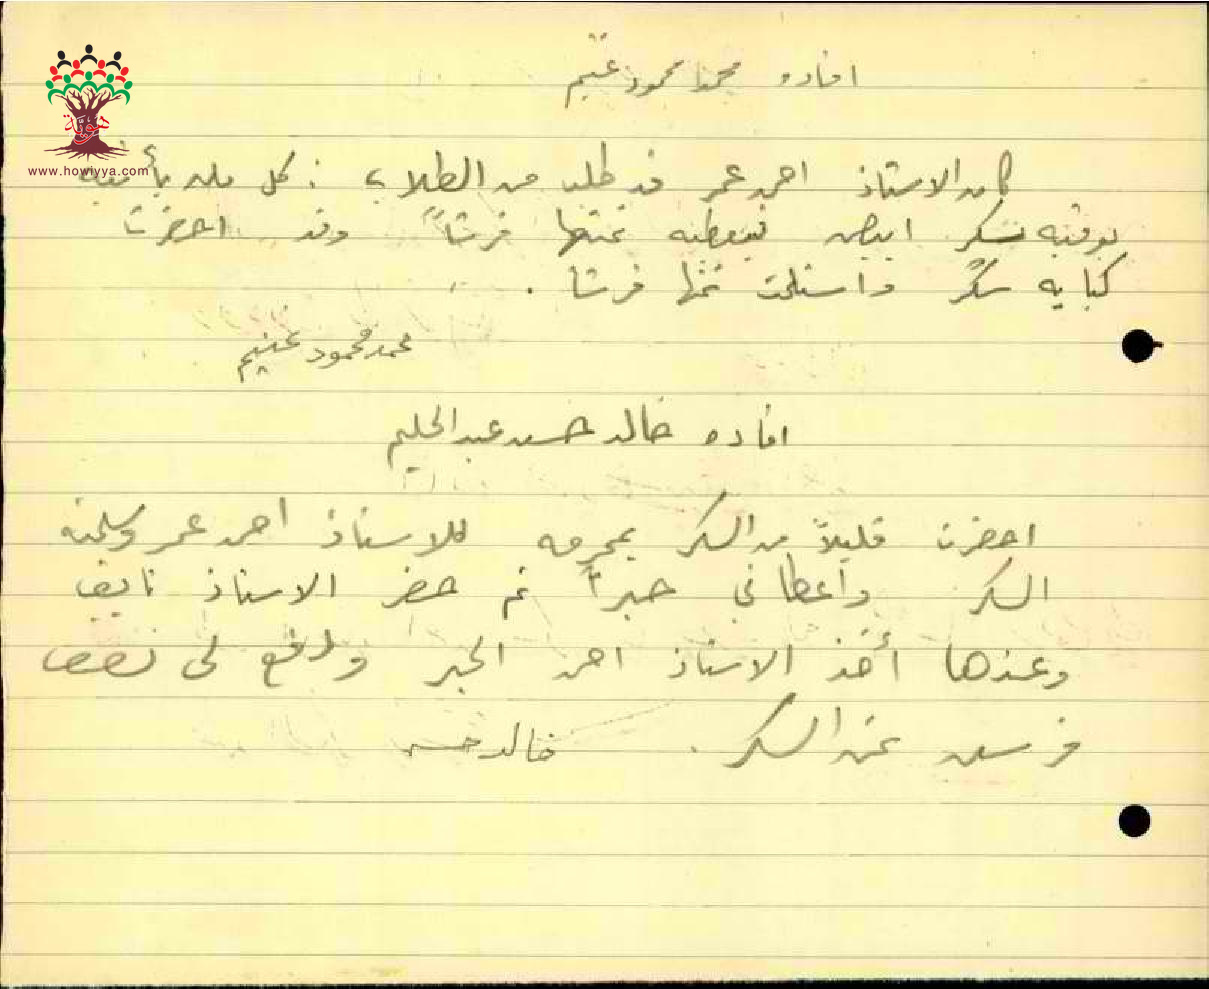 افاده محمد محمود غنيم
هوية
www.howiyya.com
كان الاستاذ احمد عمر قد طلب من الطلاب : كل من يأتيه
بوقيه سكر ابيض فيعطيه ثمنها قرشاً وقد احضرت
كبايه سكر واستلمت ثمنها قرشا .
محمد محمود غنيم
افاده خالد حسن عبد الحليم
احضرت قليلاً من السكر بمحرمه للاستاذ احمد عمر وسلمته
السكر واعطاني حبراً ثم حضر الاستاذ نايف
وعندها أخذ الاستاذ احمد الحبر ودفع لي نصف
قرش ثمن السكر . خالد حسن